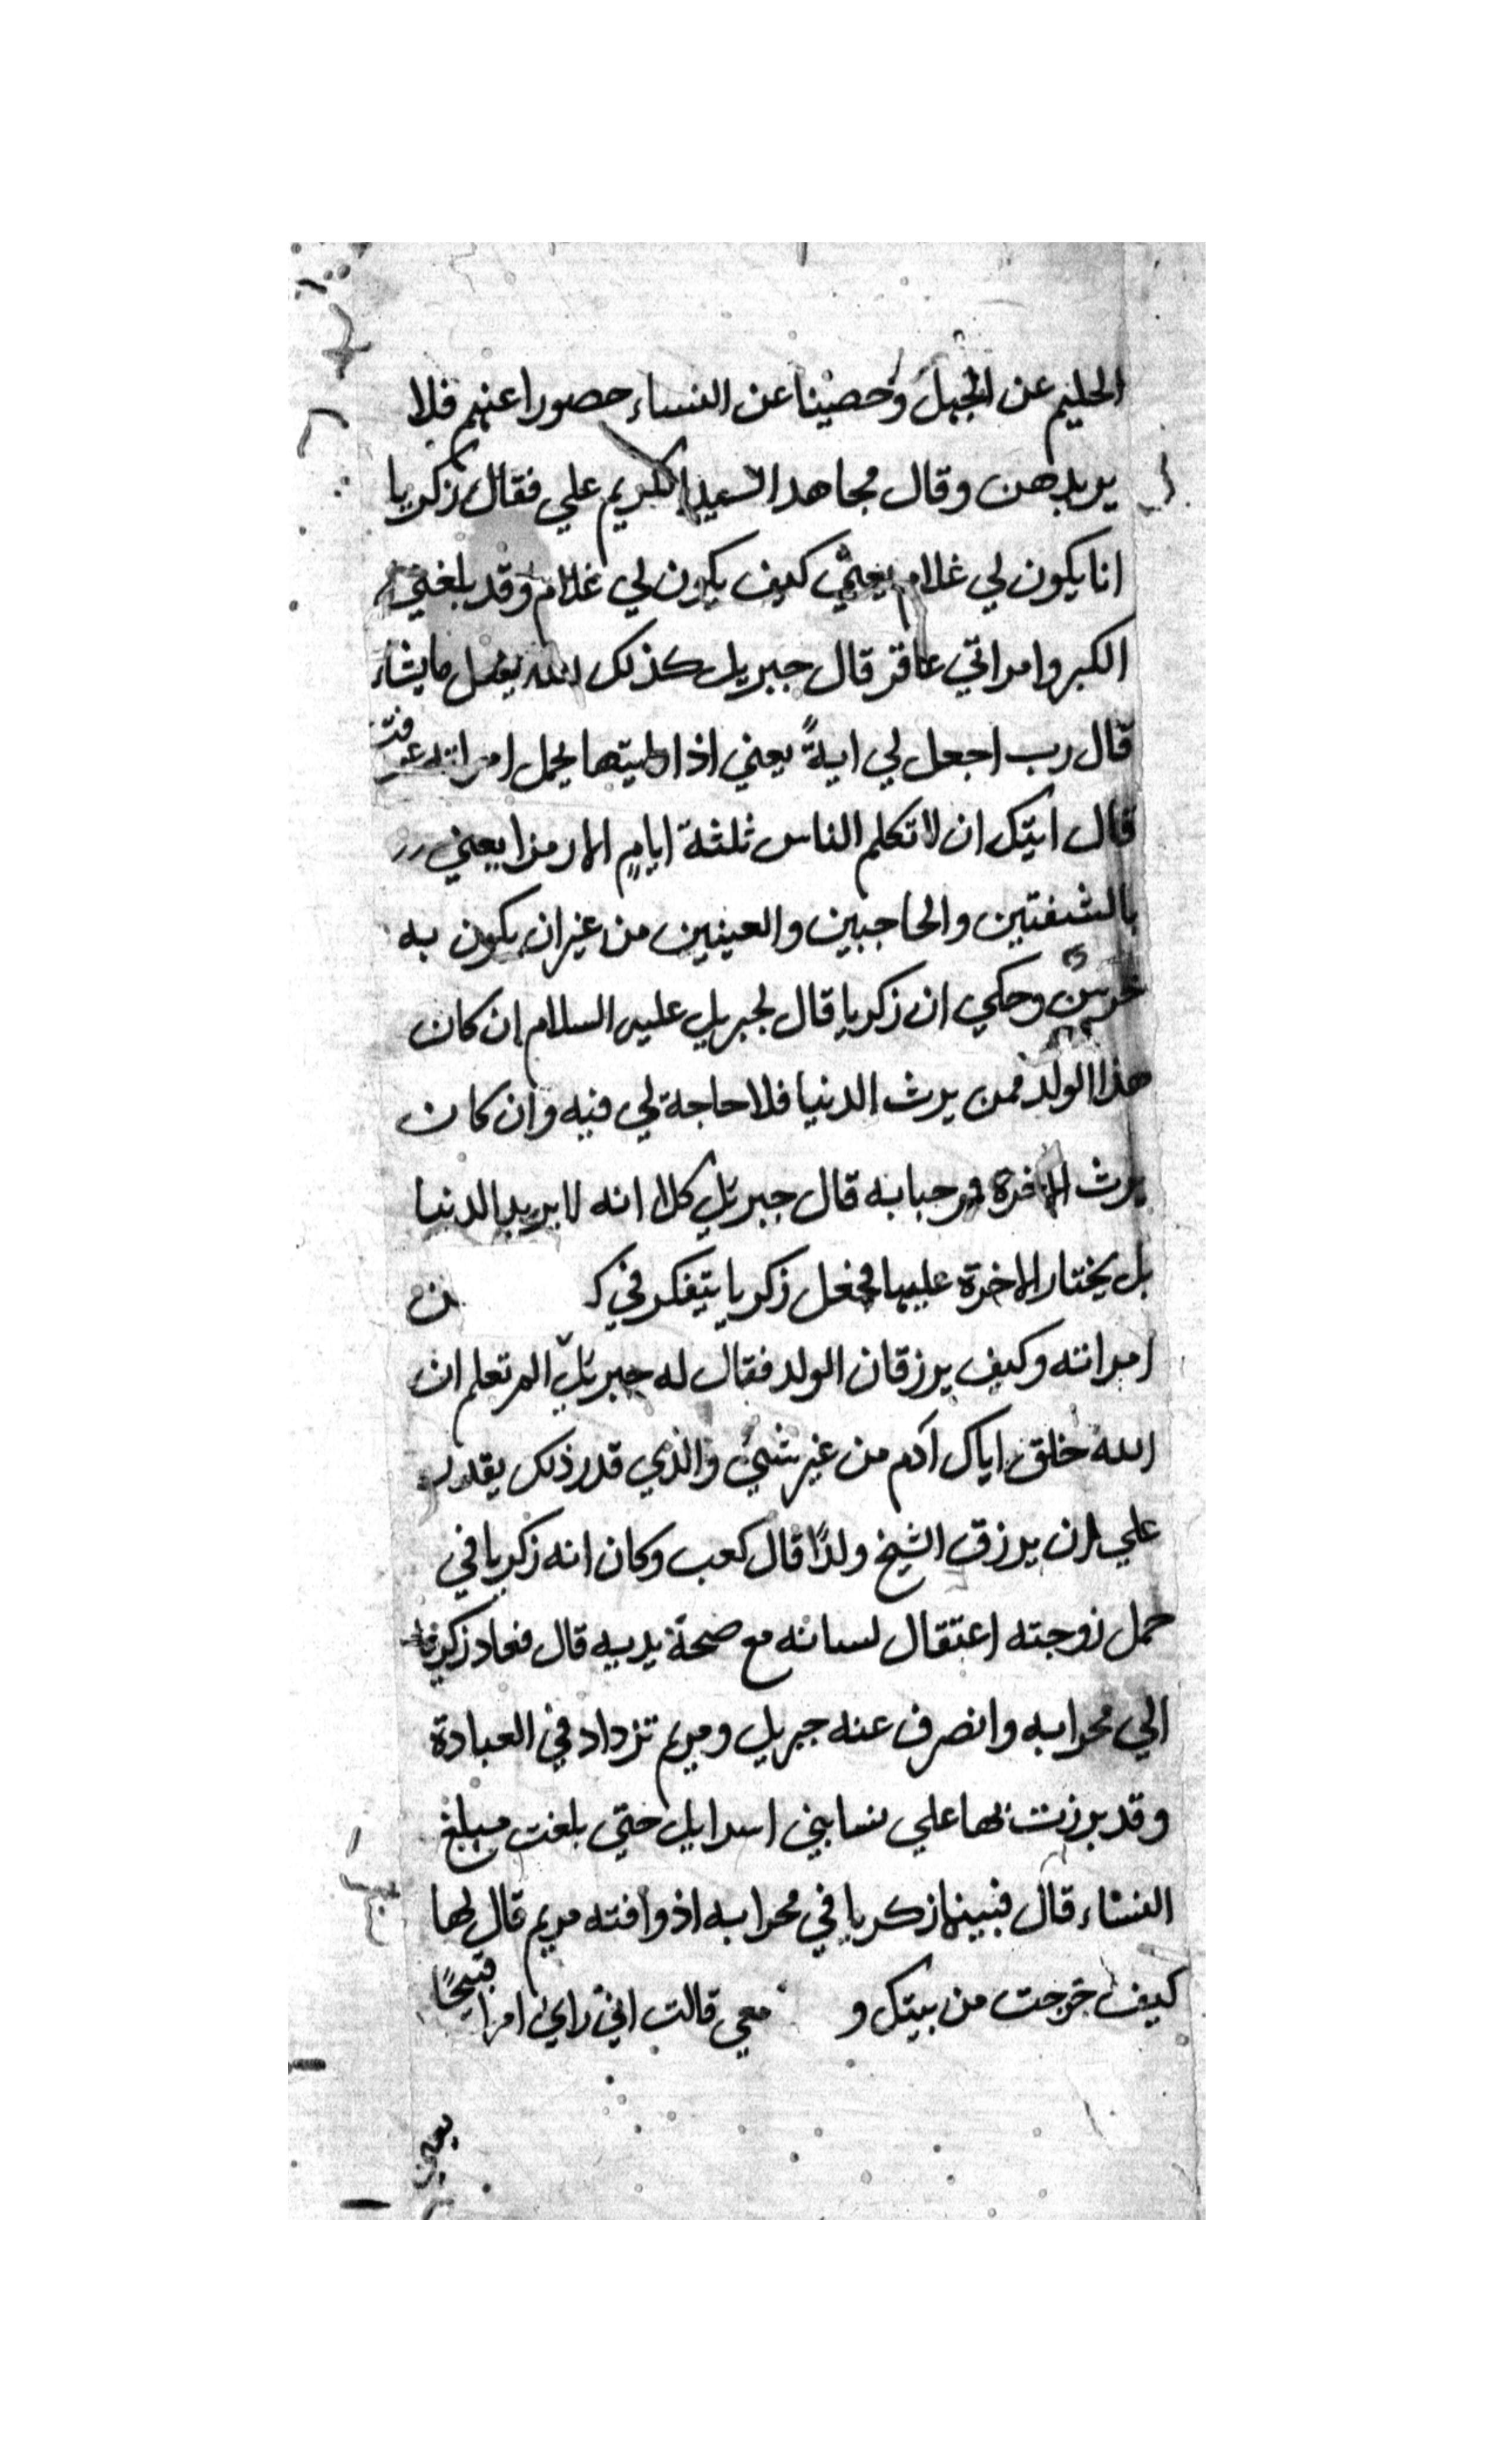 الحليم عن الجهل وحصينا عن النساء حصورا عنهم فلا
يريدهن وقال مجاهد السيد الكريم علي فقال زكريا
انا يكون لي غلام يعني كيف يكون لي غلام وقد بلغني
الكبر وامراتي عاقر قال جبريل كذلك الله يفعل ما يشاء
قال رب اجعل لي ايةً يعني اذا اتيتها بحمل امراته عرفت
قال ايتك ان لا تكلم الناس ثلثة ايامٍ الا رمزا يعني
بالشفتين والحاجبين والعينين من غير ان يكون به
خرس وحكي ان زكريا قال لجبريل عليه السلام ان كان
هذا الولد فمن يرث الدنيا فلا حاجة لي فيه وان كان
يرث الاخرة فمرحبا به قال جبريل كلا انه لا يريد الدنيا
بل يختار الاخرة عليها فجعل زكريا يتفكر في
امراته وكيف يرزقان الولد فقال له جبريل الم تعلم ان
الله خلق اباك آدم من غير شيء والذي قدر ذلك يقدر
علي ان يرزق الشيخ ولدًا قال كعب وكان انه زكريا في
حمل زوجته اعتقال لسانه مع صحة يديه قال فعاد زكريا
الي محرابه وانصرف عنه جبريل ومريم تزداد في العبادة
وقد برزت بها علي نسا بني اسرايل حتي بلغت مبلغ
النساء قال فبينما زكريا في محرابه اذ وافته مريم قال لها
كيف خرجت من بيتك و معي قالت اني رايت امرا قبيحًا
يعني